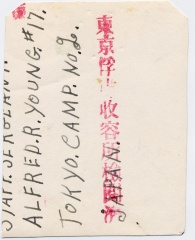 STAFF.SERGEANT.
ALFRED.R.YOUNG.#17.
TOKYO.CAMP.NO.2.
JAPAN.
東京俘虜收容所